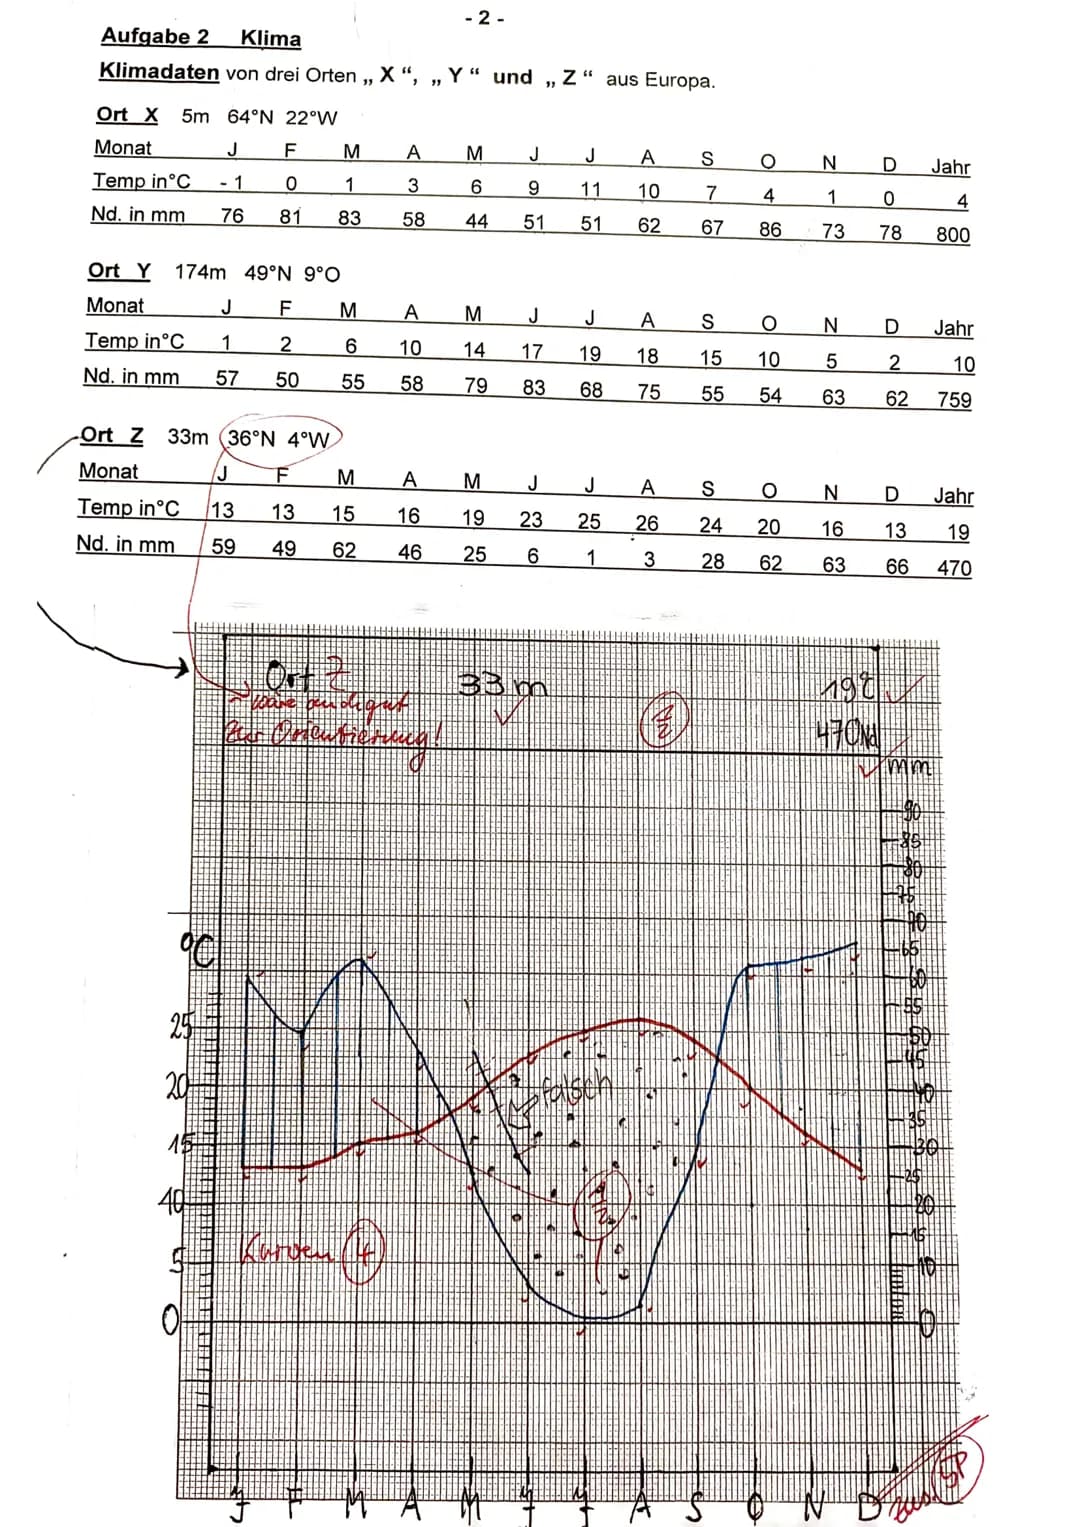 - 2 -
Aufgabe 2 Klima
Klimadaten von drei Orten „ X “, „ Y “ und „ Z “ aus Europa.
Ort X 5m 64°N 22°W
Monat J F M A M J J A S O N D Jahr
Temp in°C - 1 0 1 3 6 9 11 10 7 4 1 0 4
Nd. in mm 76 81 83 58 44 51 51 62 67 86 73 78 800
Ort Y 174m 49°N 9°O
Monat J F M A M J J A S O N D Jahr
Temp in°C 1 2 6 10 14 17 19 18 15 10 5 2 10
Nd. in mm 57 50 55 58 79 83 68 75 55 54 63 62 759
Ort Z 33m 36°N 4°W
Monat J F M A M J J A S O N D Jahr
Temp in°C 13 13 15 16 19 23 25 26 24 20 16 13 19
Nd. in mm 59 49 62 46 25 6 1 3 28 62 63 66 470
Ort Z 33m 19°C
wäre auch gut
zur Orientierung!
1/2
470Nd
mm
90
85
80
75
70
°C
65
60
55
25
50
45
20
40
falsch
35
15
30
25
10
20
1/2
15
Kurven 4
5
10
0
0
J F M A M J J A S O N D
zus. 5P